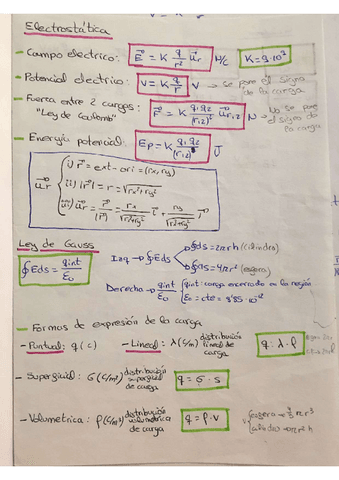 Electrostática
- Campo electrico: E⃗ = K q/r² u⃗r N/C K = 9·10⁹
- Potencial electrico: V = K q/r V → Se pone el signo de la carga
- Fuerza entre 2 cargas: "Ley de Coulomb" F⃗ = K q₁q₂/(r₁,₂)² u⃗r₁,₂ N → No se pone el signo de la carga
- Energía potencial: Ep = K q₁q₂/(r₁,₂) J
u⃗r { i) r⃗ = ext - ori = (rx, ry)
ii) |r⃗| = r = √rx² + ry²
iii) u⃗r = r⃗/|r⃗| = rx/√rx²+ry² i⃗ + ry/√rx²+ry² j⃗
Ley de Gauss
∮Eds = qint/ε₀
Izq → ∮Eds → ∮ds = 2πrh (cilindro)
→ ∮ds = 4πr² (esfera)
Derecha → qint/ε₀ { qint: carga encerrada en la región
ε₀ = cte = 8'85·10⁻¹²
- Formas de expresión de la carga
- Puntual: q (C) - Lineal: λ (C/m) distribución lineal de carga q = λ·l
- Superficial: σ (C/m²) distribución superficial de carga q = σ·s
- Volumetrica: ρ (C/m³) distribución volumetrica de carga q = ρ·v
v: { esfera → 4/3 πr³
cilindro → πr²h